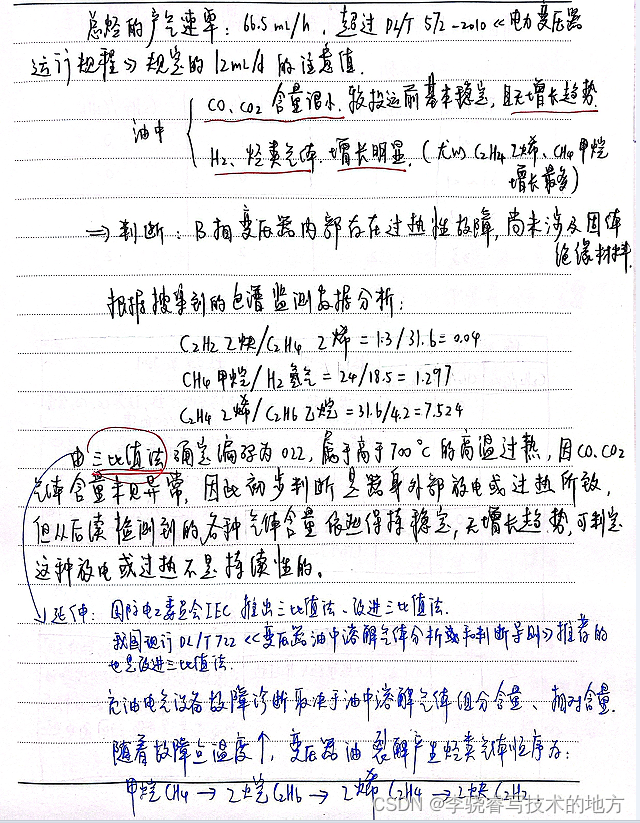 总烃的产气速率：66.5 mL/h，超过 DL/T 572-2010《电力变压器
运行规程》规定的12mL/d 的注意值.
油中
CO、CO2 含量很小、较投运前基本稳定，且无增长趋势.
H2、烃类气体、增长明显.(尤以 C2H4 乙烯、CH4 甲烷
增长最多)
⇒ 判断：B相变压器内部存在过热性故障，尚未涉及固体
绝缘材料.
根据搜集到的色谱监测数据分析：
C2H2 乙炔/C2H4 乙烯 = 1.3/31.6 = 0.04
CH4 甲烷/H2 氢气 = 24/18.5 = 1.297
C2H4 乙烯/C2H6 乙烷 = 31.6/4.2 = 7.524
由三比值法确定编码为022，属于高于700℃的高温过热，因CO、CO2
气体含量未见异常，因此初步判断是器身外部放电或过热所致，
但从后续检测到的各种气体含量依然保持稳定，无增长趋势，可判定
这种放电或过热不是持续性的。
延伸：国际电工委员会IEC 推出三比值法、改进三比值法.
我国现行 DL/T722《变压器油中溶解气体分析或和判断导则》推荐的
也是改进三比值法.
充油电气设备故障诊断取决于油中溶解气体组分含量、相对含量.
随着故障点温度↑，变压器油裂解产生烃类气体顺序为：
甲烷CH4 → 乙烷C2H6 → 乙烯C2H4 → 乙炔C2H2
CSDN @李骁睿写技术的地方